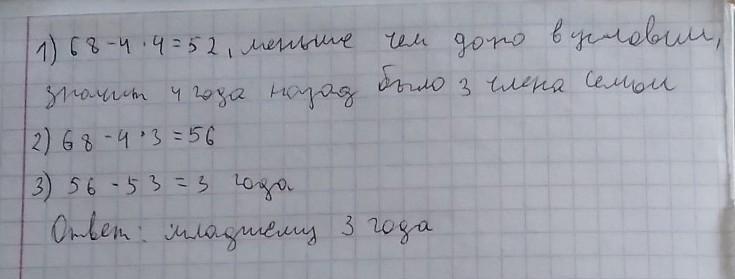 1) 68-4·4=52, меньше чем дано в условии,
значит 4 года назад было 3 члена семьи
2) 68-4·3=56
3) 56-53=3 года
Ответ: младшему 3 года